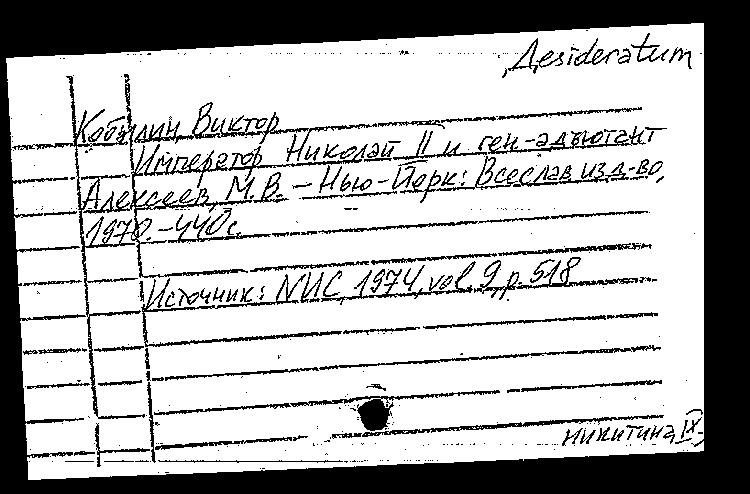 Desideratum
Кобылин, Виктор
Император Николай II и ген-адъютант
Алексеев, М.В. – Нью-Йорк: Всеслав изд-во,
1970. – 440с.
Источник: NUC, 1974, vol. 9, p. 518
Никитина, IX,